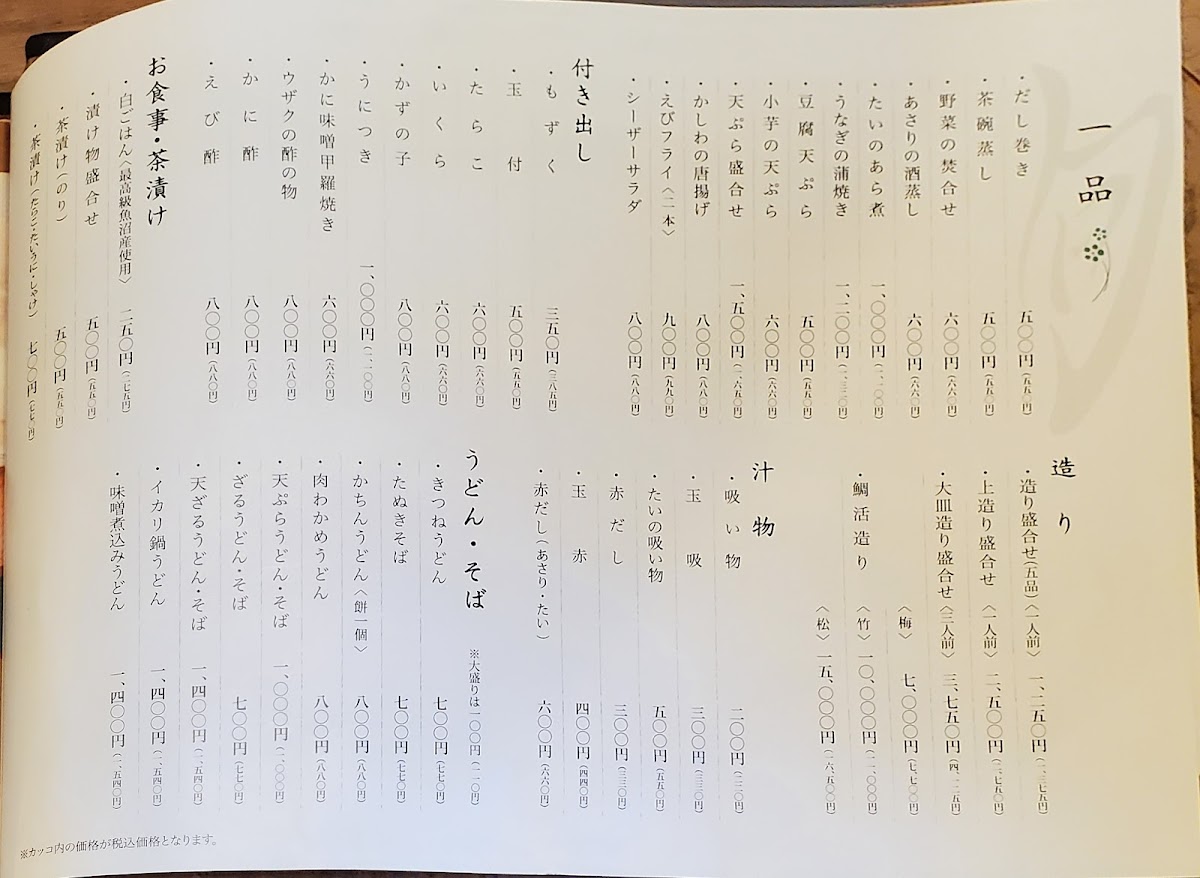 一品
・だし巻き 五〇〇円(五五〇円)
・茶碗蒸し 五〇〇円(五五〇円)
・野菜の焚合せ 六〇〇円(六六〇円)
・あさりの酒蒸し 六〇〇円(六六〇円)
・たいのあら煮 一、〇〇〇円(一、一〇〇円)
・うなぎの蒲焼き 一、二〇〇円(一、三二〇円)
・豆腐天ぷら 五〇〇円(五五〇円)
・小芋の天ぷら 六〇〇円(六六〇円)
・天ぷら盛合せ 一、五〇〇円(一、六五〇円)
・かしわの唐揚げ 八〇〇円(八八〇円)
・えびフライ〈二本〉 九〇〇円(九九〇円)
・シーザーサラダ 八〇〇円(八八〇円)
付き出し
・もずく 三五〇円(三八五円)
・玉付 五〇〇円(五五〇円)
・たらこ 六〇〇円(六六〇円)
・いくら 六〇〇円(六六〇円)
・かずの子 八〇〇円(八八〇円)
・うにつき 一、〇〇〇円(一、一〇〇円)
・かに味噌甲羅焼き 六〇〇円(六六〇円)
・ウザクの酢の物 八〇〇円(八八〇円)
・かに酢 八〇〇円(八八〇円)
・えび酢 八〇〇円(八八〇円)
お食事・茶漬け
・白ごはん〈最高級魚沼産使用〉 二五〇円(二七五円)
・漬け物盛合せ 五〇〇円(五五〇円)
・茶漬け(のり) 五〇〇円(五五〇円)
・茶漬け(たらこ・たい・うに・しゃけ) 七〇〇円(七七〇円)
造り
・造り盛合せ(五品)〈一人前〉 一、二五〇円(一、三七五円)
・上造り盛合せ〈一人前〉 二、五〇〇円(二、七五〇円)
・大皿造り盛合せ〈三人前〉 三、七五〇円(四、一二五円)
〈梅〉 七、〇〇〇円(七、七〇〇円)
・鯛活造り〈竹〉 一〇、〇〇〇円(一一、〇〇〇円)
〈松〉 一五、〇〇〇円(一六、五〇〇円)
汁物
・吸い物 二〇〇円(二二〇円)
・玉吸 三〇〇円(三三〇円)
・たいの吸い物 五〇〇円(五五〇円)
・赤だし 三〇〇円(三三〇円)
・玉赤 四〇〇円(四四〇円)
・赤だし(あさり・たい) 六〇〇円(六六〇円)
うどん・そば ※大盛りは一〇〇円(一一〇円)
・きつねうどん 七〇〇円(七七〇円)
・たぬきそば 七〇〇円(七七〇円)
・かちんうどん〈餅一個〉 八〇〇円(八八〇円)
・肉わかめうどん 八〇〇円(八八〇円)
・天ぷらうどん・そば 一、〇〇〇円(一、一〇〇円)
・ざるうどん・そば 七〇〇円(七七〇円)
・天ざるうどん・そば 一、四〇〇円(一、五四〇円)
・イカリ鍋うどん 一、四〇〇円(一、五四〇円)
・味噌煮込みうどん 一、四〇〇円(一、五四〇円)
※カッコ内の価格が税込価格となります。